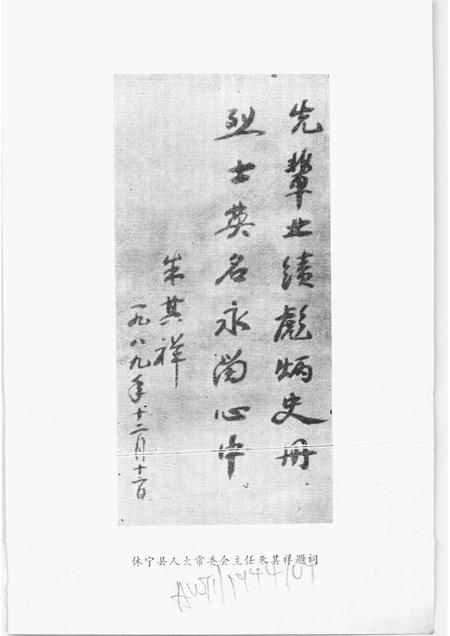 先辈业绩彪炳史册
烈士英名永留心中
朱其祥
一九八九年十二月十二日
休宁县人大常委会主任朱其祥题词